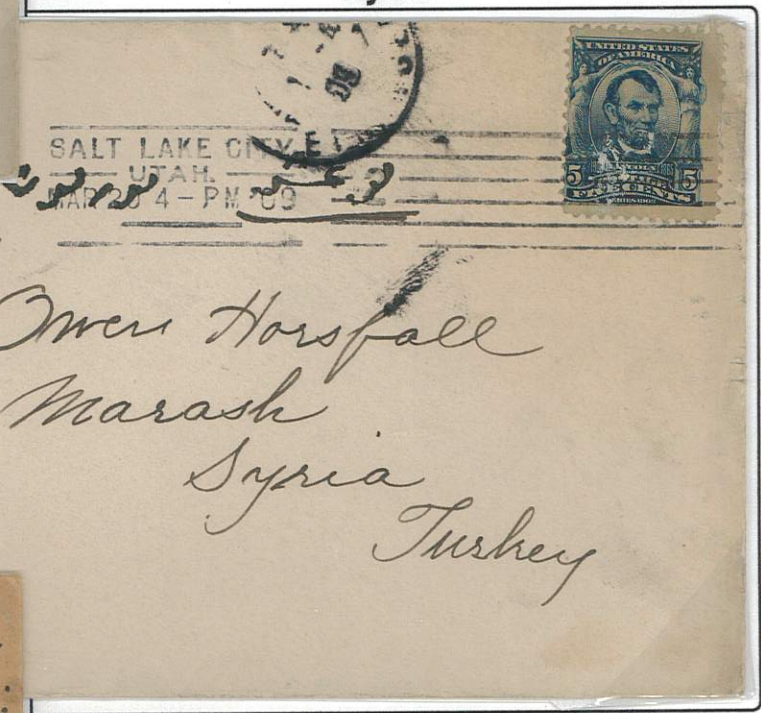 UNITED STATES
OF AMERICA
5 5
SERIES 1902
SALT LAKE CITY,
UTAH.
MAR 20 4-PM '09
Owen Horsfall
Marash
Syria
Turkey